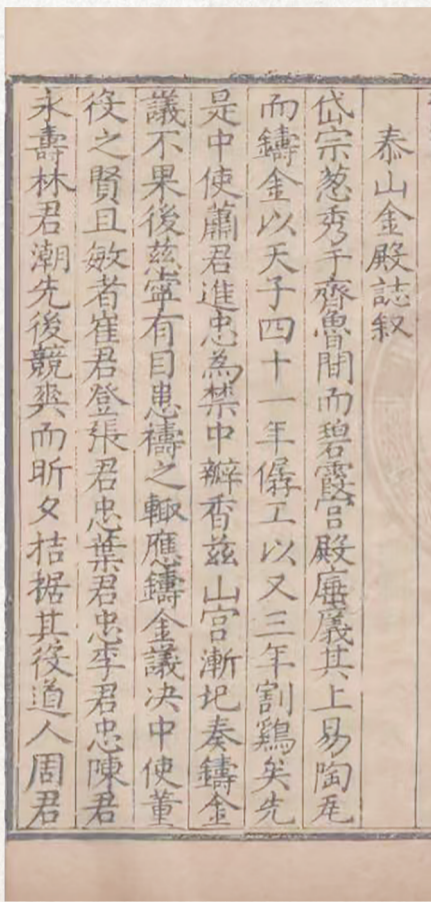 泰山金殿誌叙
岱宗葱秀于齊魯間而碧霞宫殿廡巍其上易陶瓦
而鑄金以天子四十一年僝工以又三年割鷄矣先
是中使蕭君進忠為禁中瓣香茲山宫漸圮奏鑄金
議不果後慈寧有目患禱之輙應鑄金議决中使董
役之賢且敏者崔君登張君忠葉君忠李君忠陳君
永壽林君潮先後競爽而昕夕拮据其役道人周君